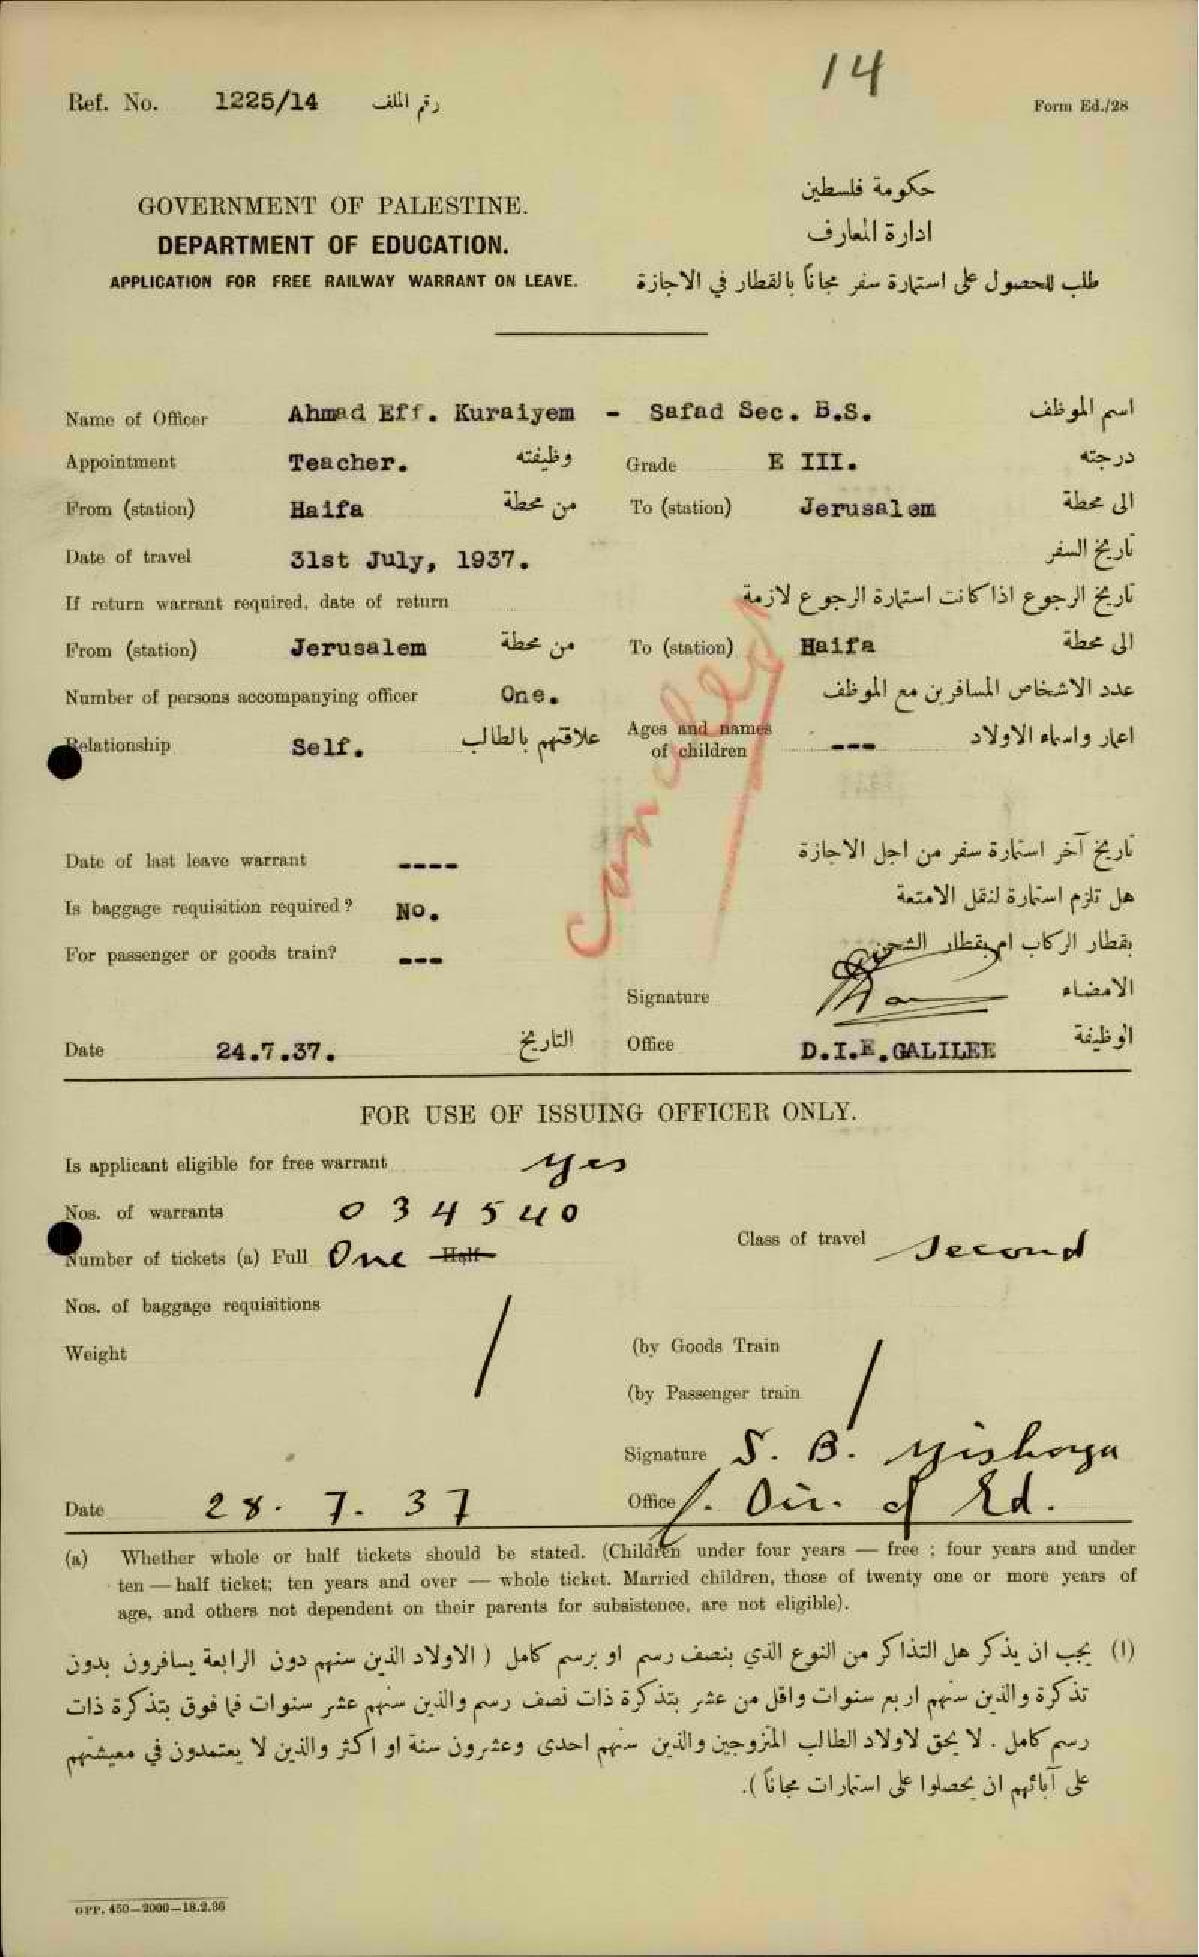 14
Ref. No. 1225/14 رقم الملف
Form Ed./28
GOVERNMENT OF PALESTINE.
DEPARTMENT OF EDUCATION.
APPLICATION FOR FREE RAILWAY WARRANT ON LEAVE.
حكومة فلسطين
ادارة المعارف
طلب للحصول على استمارة سفر مجاناً بالقطار في الاجازة
Name of Officer Ahmad Eff. Kuraiyem - Safad Sec. B.S. اسم الموظف
Appointment Teacher. وظيفته Grade E III. درجته
From (station) Haifa من محطة To (station) Jerusalem الى محطة
Date of travel 31st July, 1937. تاريخ السفر
If return warrant required, date of return تاريخ الرجوع اذا كانت استمارة الرجوع لازمة
From (station) Jerusalem من محطة To (station) Haifa الى محطة
Number of persons accompanying officer One. عدد الاشخاص المسافرين مع الموظف
Relationship Self. علاقتهم بالطالب Ages and names of children --- اعمار واسماء الاولاد
Cancelled
Date of last leave warrant ---- تاريخ آخر استمارة سفر من اجل الاجازة
Is baggage requisition required? No. هل تلزم استمارة لنقل الامتعة
For passenger or goods train? --- بقطار الركاب ام بقطار الشحن
Signature الامضاء
Date 24.7.37. التاريخ Office D.I.E.GALILEE الوظيفة
FOR USE OF ISSUING OFFICER ONLY.
Is applicant eligible for free warrant yes
Nos. of warrants 034540
Number of tickets (a) Full One Half
Class of travel Second
Nos. of baggage requisitions /
Weight
(by Goods Train
(by Passenger train /
Signature S. B.
Date 28. 7. 37 Office f. Dir. of Ed.
(a) Whether whole or half tickets should be stated. (Children under four years — free ; four years and under
ten — half ticket; ten years and over — whole ticket. Married children, those of twenty one or more years of
age, and others not dependent on their parents for subsistence, are not eligible).
(ا) يجب ان يذكر هل التذاكر من النوع الذي بنصف رسم او برسم كامل ( الاولاد الذين سنهم دون الرابعة يسافرون بدون
تذكرة والذين سنهم اربع سنوات واقل من عشر بتذكرة ذات نصف رسم والذين سنهم عشر سنوات فما فوق بتذكرة ذات
رسم كامل . لا يحق لاولاد الطالب المتزوجين والذين سنهم احدى وعشرون سنة او اكثر والذين لا يعتمدون في معيشتهم
على آبائهم ان يحصلوا على استمارات مجاناً ).
GPP. 450—2000—18.2.36